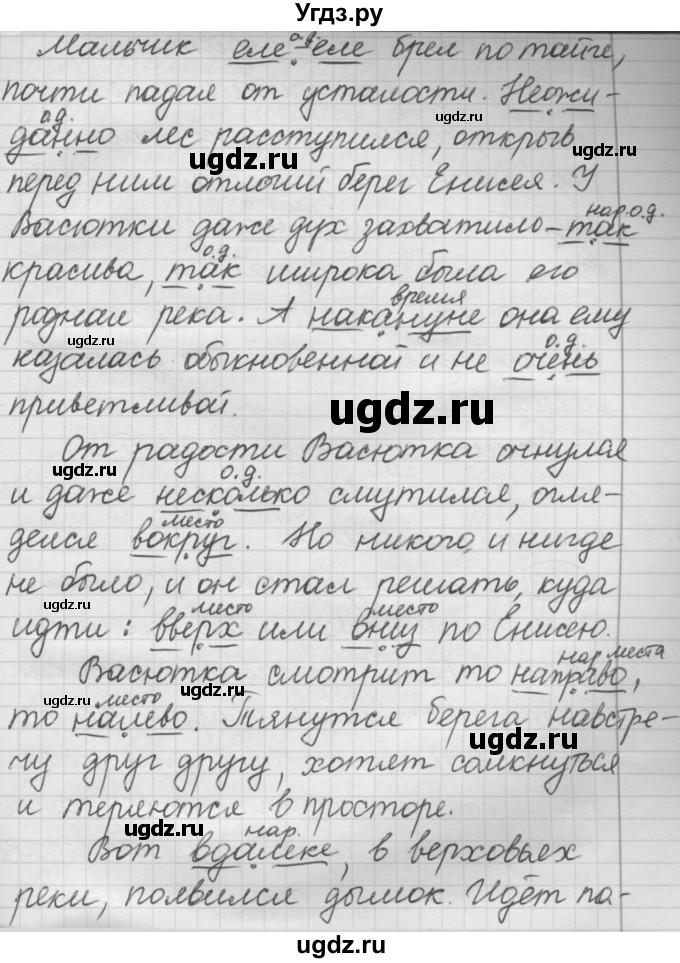 Угдз.ру
о.д.
Мальчик еле-еле брел по тайге,
почти падая от усталости. Неожи-
о.д.
данно лес расступился, открыв
ugdz.ru ugdz.ru
перед ним отлогий берег Енисея. У
нар.о.д.
Васютки даже дух захватило - так
о.д.
красива, так широка была его
время
родная река. А накануне она ему
ugdz.ru
о.д.
казалась обыкновенной и не очень
приветливой.
ugdz.ru
От радости Васютка очнулся
ugdz.ru
о.д.
и даже несколько смутился, огля-
место
делся вокруг. Но никого и нигде
не было, и он стал решать, куда
ugdz.ru
место место
идти: вверх или вниз по Енисею.
нар. места
Васютка смотрит то направо,
место
то налево. Тянутся берега навстре-
ugdz.ru ugdz.ru
чу друг другу, хотят сомкнуться
и теряются в просторе.
ugdz.ru
нар.
Вот вдалеке, в верховьях
реки, появился дымок. Идёт па-
ugdz.ru